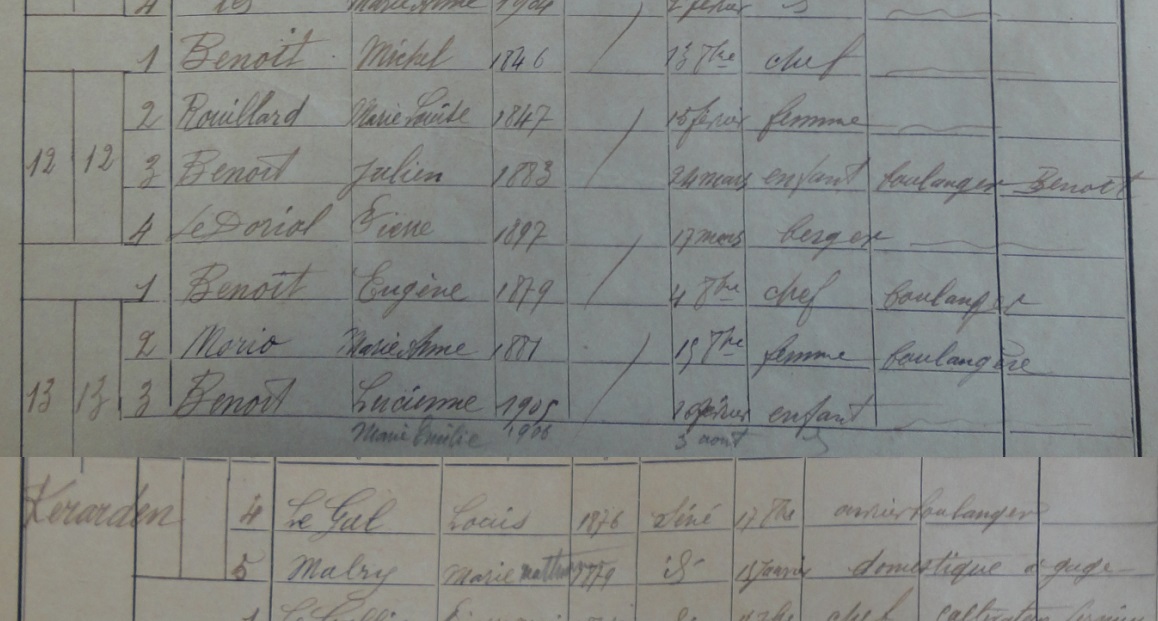 4 Marie Anne 1904 2 février
1 Benoît Michel 1846 13 7bre chef
2 Rouillard Marie Louise 1847 15 février femme
12 12 3 Benoît Julien 1883 24 mars enfant boulanger Benoît
4 Le Doriol Pierre 1897 17 mars berger
1 Benoît Eugène 1879 4 8bre chef boulanger
2 Morio Marie Anne 1881 19 7bre femme boulangère
13 13 3 Benoît Lucienne 1905 16 février enfant
Marie Emilie 1906 3 août
Kerarden 4 Le Gul Louis 1876 Séné 17 7bre ouvrier boulanger
5 Malry Marie 1879 id janvier domestique à gage
1 chef cultivateur fermier